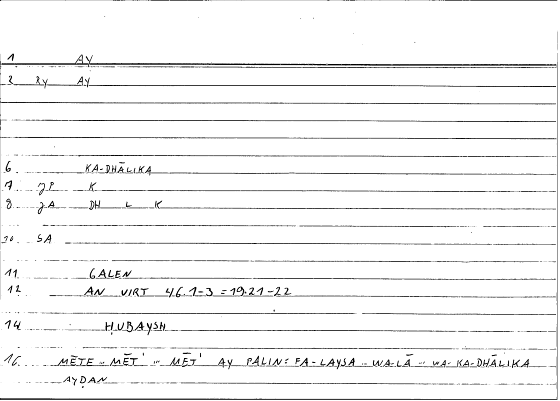 1 AY
2 Ry AY
6 KA-DHĀLIKA
7 JP K
8 JA DH L K
10 SA
11 GALEN
12 AN VIRT 46.1-3 = 19.21-22
14 ḤUBAYSH
16 MĒTE .. MĒT' .. MĒT' AY PALIN: FA-LAYSA .. WA-LĀ .. WA-KA-DHĀLIKA
AYḌAN